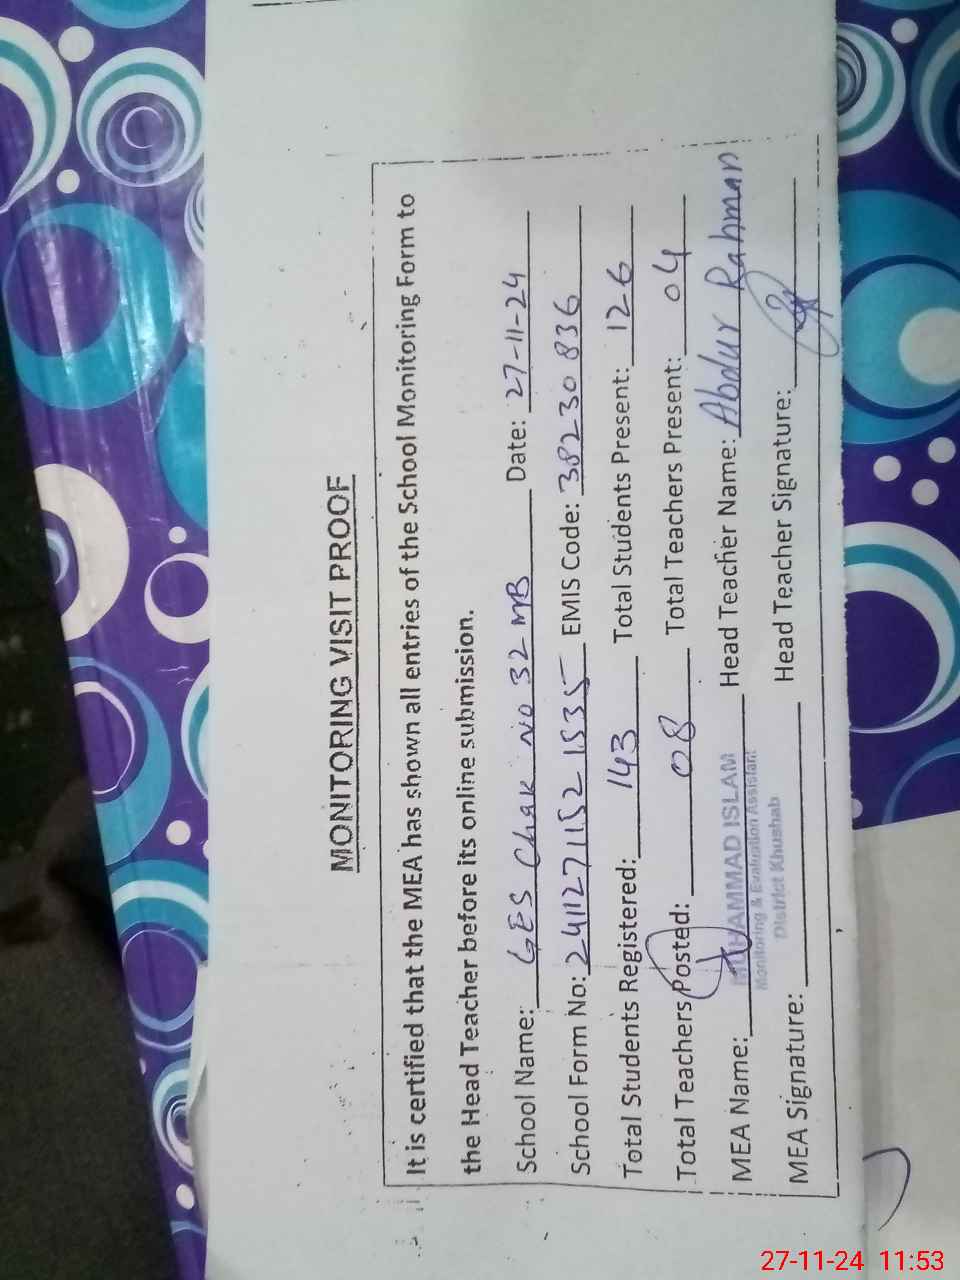 MONITORING VISIT PROOF
It is certified that the MEA has shown all entries of the School Monitoring Form to
the Head Teacher before its online submission.
School Name: GES Chak No 32 MB Date: 27-11-24
School Form No: 24112711521535 EMIS Code: 38230836
Total Students Registered: 143 Total Students Present: 126
Total Teachers Posted: 08 Total Teachers Present: 04
MEA Name: MUHAMMAD ISLAM Head Teacher Name: Abdur Rahman
Monitoring & Evaluation Assistant
District Khushab
MEA Signature: Head Teacher Signature:
27-11-24 11:53